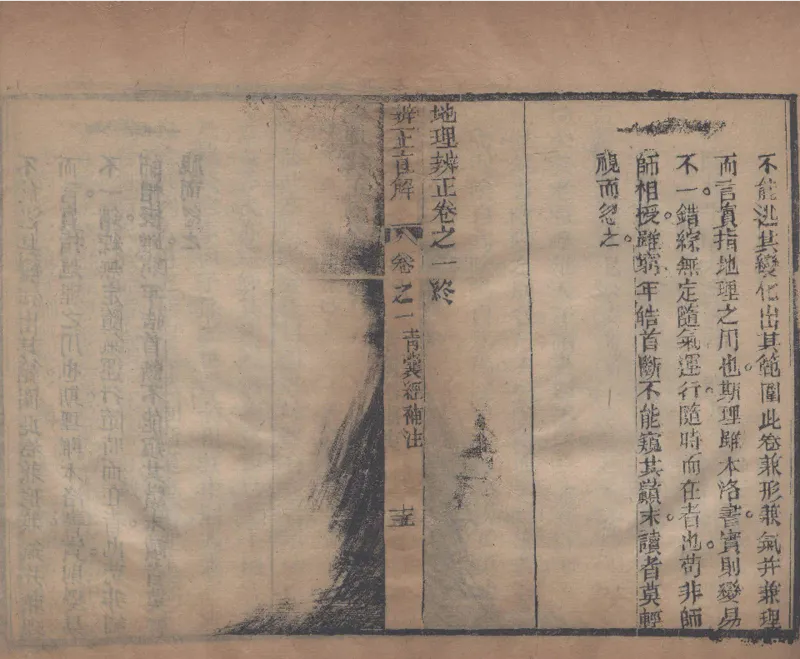 不能逃其變化出其範圍此卷兼形兼氣并兼理
而言實指地理之用也斯理雖本洛書實則變易
不一錯綜無定隨氣運行隨時而在者也苟非師
師相授雖窮年皓首斷不能窺其巔末讀者莫輕
視而忽之
地理辨正卷之一終
辨正直解 卷之一 青囊經補注 十五